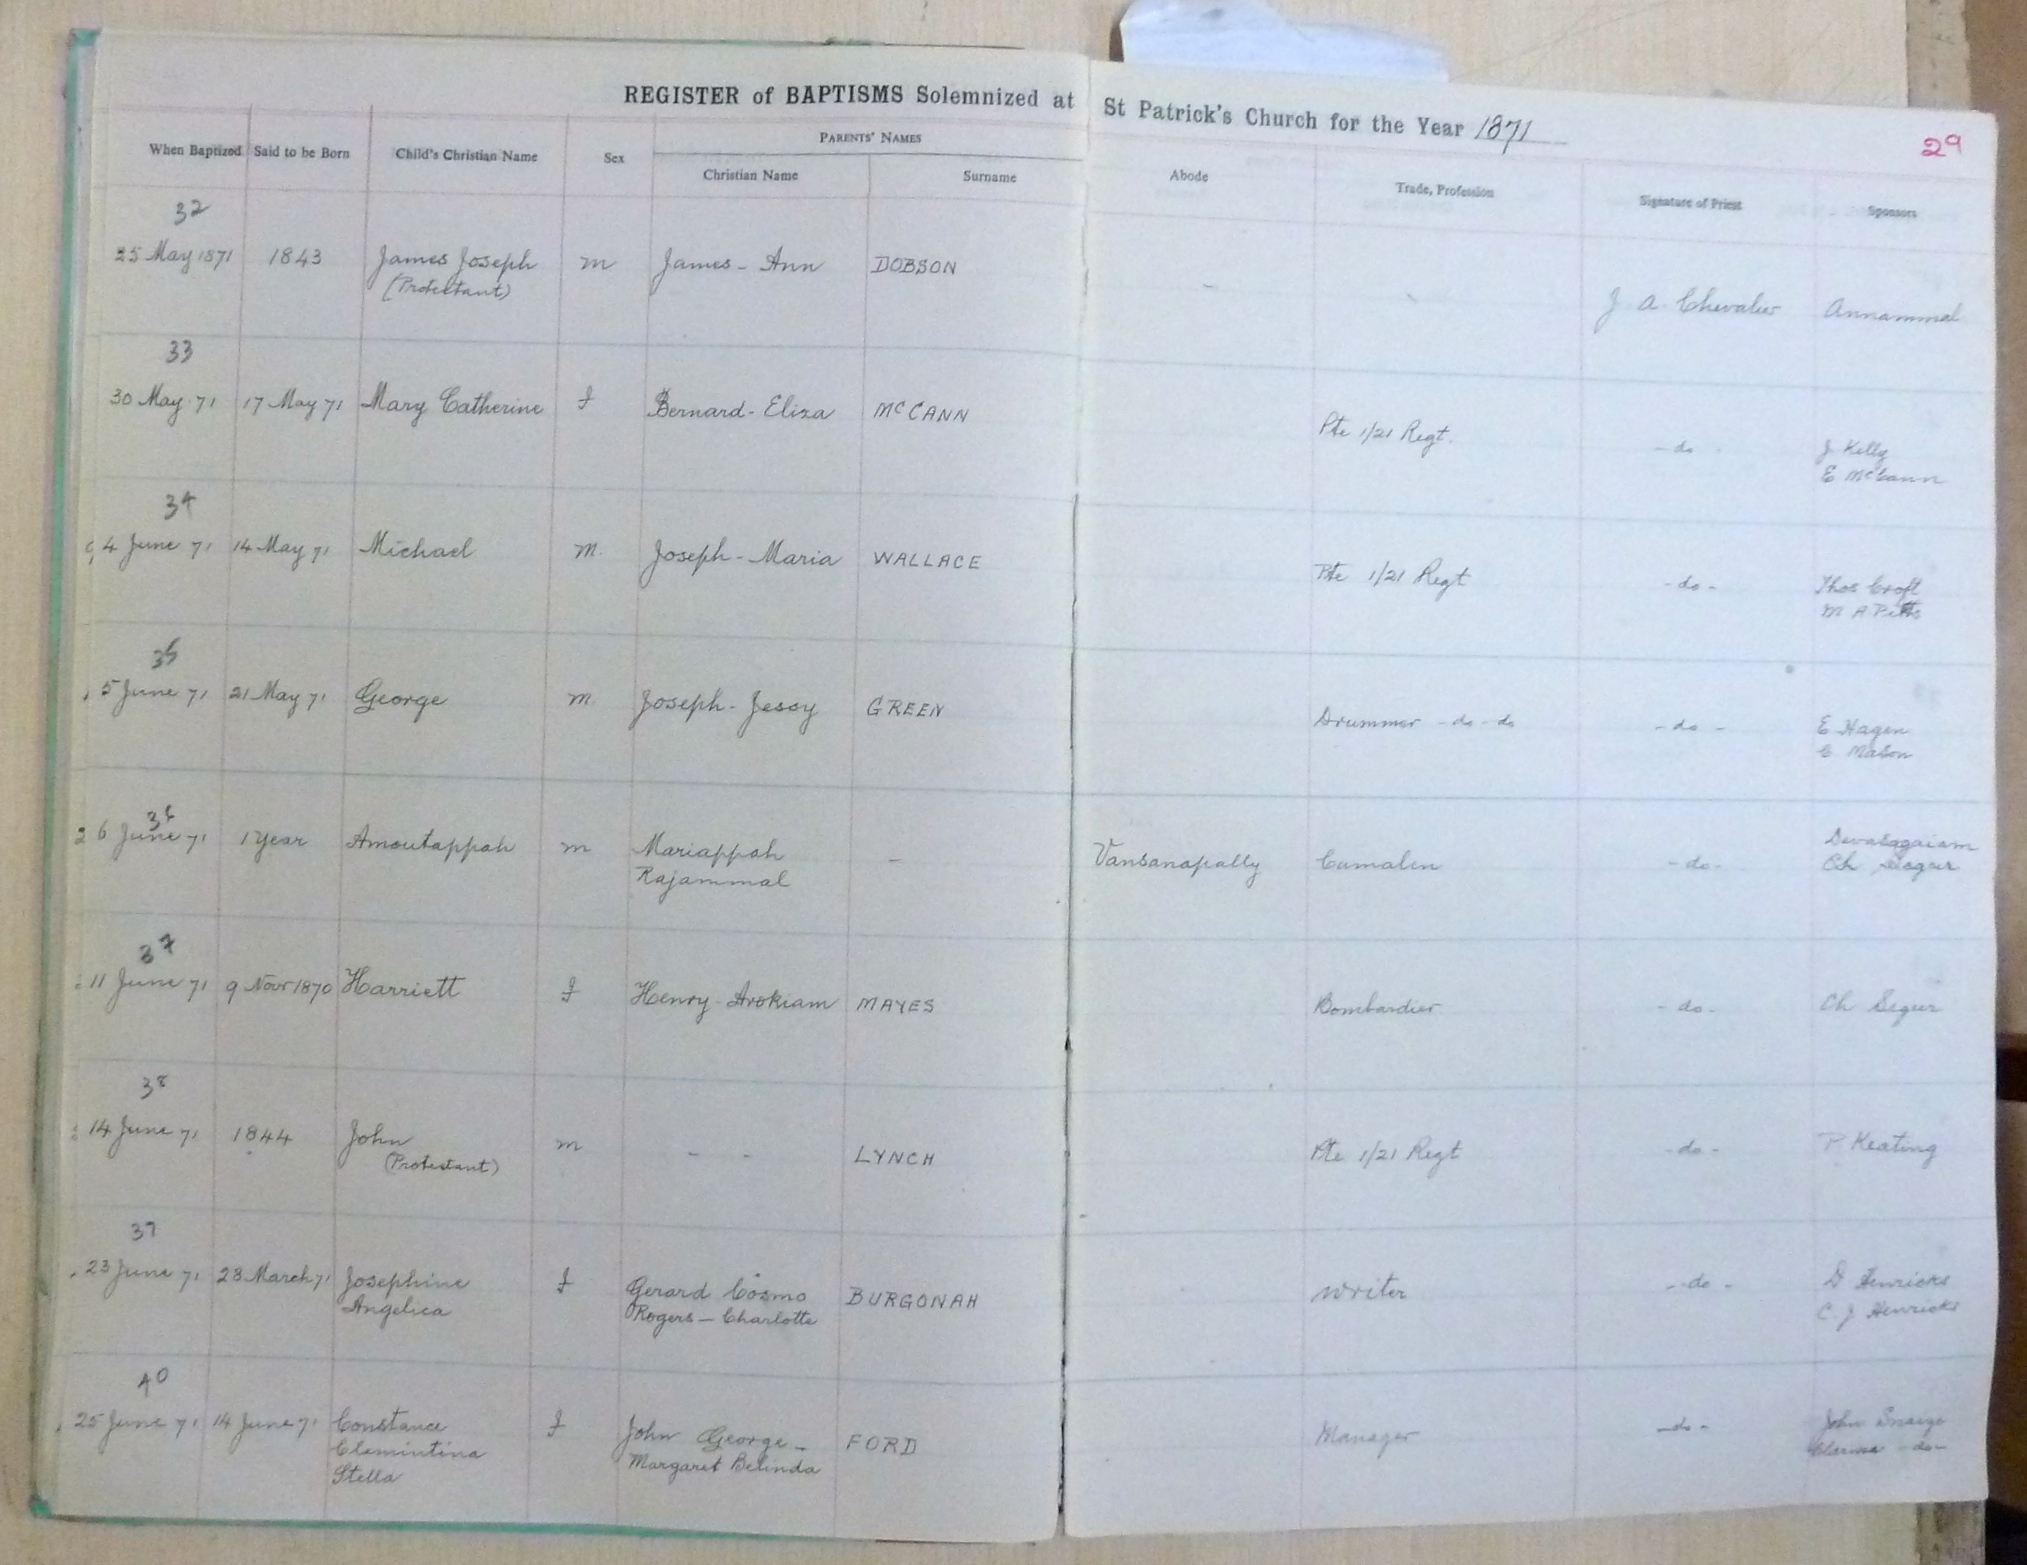 REGISTER of BAPTISMS Solemnized at St Patrick's Church for the Year 1871
29
When Baptized Said to be Born Child's Christian Name Sex PARENTS' NAMES Christian Name Surname Abode Trade, Profession Signature of Priest Sponsors
32
25 May 1871 1843 James Joseph m James - Ann DOBSON - J A. Chevalier Annammal
(Protestant)
33
30 May 71 17 May 71 Mary Catherine f Bernard - Eliza McCANN Pte 1/21 Regt. - do J Kelly
E McCann
34
4 June 71 14 May 71 Michael m. Joseph - Maria WALLACE Pte 1/21 Regt - do - Thos Croft
M A Pitts
35
5 June 71 21 May 71 George m. Joseph - Jessy GREEN Drummer - do - do - do - E Hagen
C Mason
36
6 June 71 1 Year Amoutappah m Mariappah - Vansanapally - do -
Rajammal Ch
37
11 June 71 9 Novr 1870 Harriett f Henry - Arokiam MAYES Bombardier - do - Ch Segur
38
14 June 71 1844 John m - - LYNCH Pte 1/21 Regt - do - P. Keating
(Protestant)
39
23 June 71 28 March 71 Josephine f Gerard Cosmo BURGONAH Writer - do - D Henricks
Angelica Rogers - Charlotte C. J Henricks
40
25 June 71 14 June 71 Constance f John George - FORD Manager - do - John
Clemintina Margaret Belinda - do -
Stella